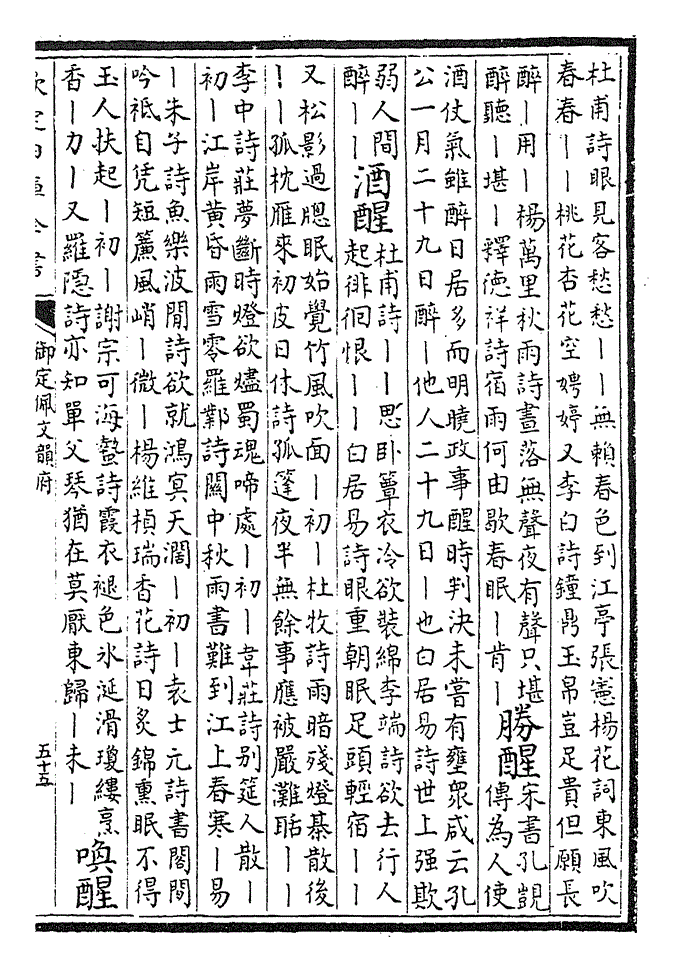 杜甫詩眼見客愁愁丨丨無賴春色到江亭張憲楊花詞東風吹
春春丨丨桃花杏花空娉婷又李白詩鐘鼎玉帛豈足貴但願長
醉丨用丨楊萬里秋雨詩晝落無聲夜有聲只堪
醉聽丨堪丨釋德祥詩宿雨何由歇春眠丨肯丨
勝醒
宋書孔覬
傳為人使
酒仗氣雖醉日居多而明曉政事醒時判決未嘗有壅衆咸云孔
公一月二十九日醉丨他人二十九日丨也白居易詩世上强欺
弱人間
醉丨丨
酒醒
杜甫詩丨丨思卧簟衣冷欲裝綿李端詩欲去行人
起徘徊恨丨丨白居易詩眼重朝眠足頭輕宿丨丨
又松影過牕眠始覺竹風吹面丨初丨杜牧詩雨暗殘燈棊散後
丨丨孤枕雁來初皮日休詩孤篷夜半無餘事應被嚴灘聒丨丨
李中詩莊夢斷時燈欲燼蜀魂啼處丨初丨韋莊詩别筵人散丨
初丨江岸黄昏雨雪零羅鄴詩闗中秋雨書難到江上春寒丨易
丨朱子詩魚樂波閒詩欲就鴻冥天濶丨初丨袁士元詩書閣閒
吟祗自凭短簾風峭丨微丨楊維楨瑞香花詩日炙錦熏眠不得
玉人扶起丨初丨謝宗可海蜇詩霞衣褪色氷涎滑瓊縷烹
香丨力丨又羅隠詩亦知單父琴猶在莫厭東歸丨未丨
喚醒
欽定四庫全書
御定佩文韻府
五十五